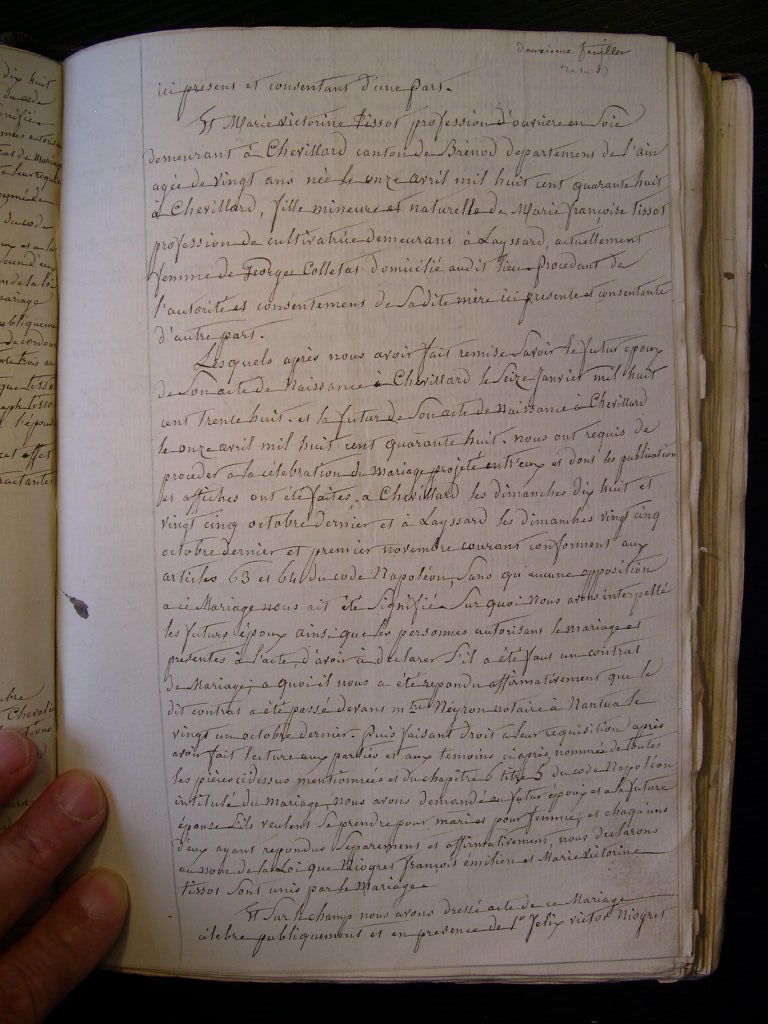 deuxième feuillet
ici présent et consentant d'une part.
Et Marie Victorine Tissot profession d'ouvrière en Soie
demeurant à Chevillard canton de Brénod département de l'ain
agée de vingt ans née le onze avril mil huit cent quarante huit
à Chevillard, fille mineure et naturelle de Marie françoise tissot
profession de cultivatrice demeurant à Layssard, actuellement
femme de George Colletas domicilié audit lieu. Procedant de
l'autorité et consentement de Sadite mère ici presente et consentante
d'autre part.
Lesquels après nous avoir fait remise Savoir le futur epoux
de Son acte de Naissance à Chevillard le Seize Janvier mil huit
cent trente huit. et la futur de Son acte de Naissance à Chevillard
le onze avril mil huit cent quarante huit. nous ont requis de
procéder à la célébration du mariage projeté entr'eux et dont les publication
et affiches ont été faites, a Chevillard les dimanches dix huit et
vingt cinq octobre dernier et à Layssard les dimanches vingt cinq
octobre dernier et premier novembre courant conforment aux
articles 63 et 64 du code Napoléon, Sans qu'aucune opposition
a ce Mariage nous ait été Signifiée Sur quoi Nous avons interpellé
les futurs époux ainsi que les personnes autorisant le mariage et
presentes à l'acte d'avoir à déclarer S'il a été fait un contrat
de Mariage, a quoi il nous a été repondu affirmativement que le
dit contrat a été passé devant mtre Neyron notaire à Nantua le
vingt un octobre dernier. Puis faisant droit à leur requisition après
avoir fait lecture aux parties et aux temoins ci après nommés de toutes
les pièces ci dessus mentionnées et du chapitre 6 titre 5 du code Napoléon
intitulé du mariage nous avons demandé au futur epoux et a la future
épouse S'ils veulent Se prendre pour mari et pour femme, et chaqu'uns
d'eux ayant repondus Séparement et affirmativement, nous declarons
au nom de la Loi que Niogret françois émilien et Marie Victorine
tissot Sont unis par le Mariage
Et Sur le champ nous avons dressé acte de ce Mariage
célébré publiquement et en présence de 1° Felix victor Niogret